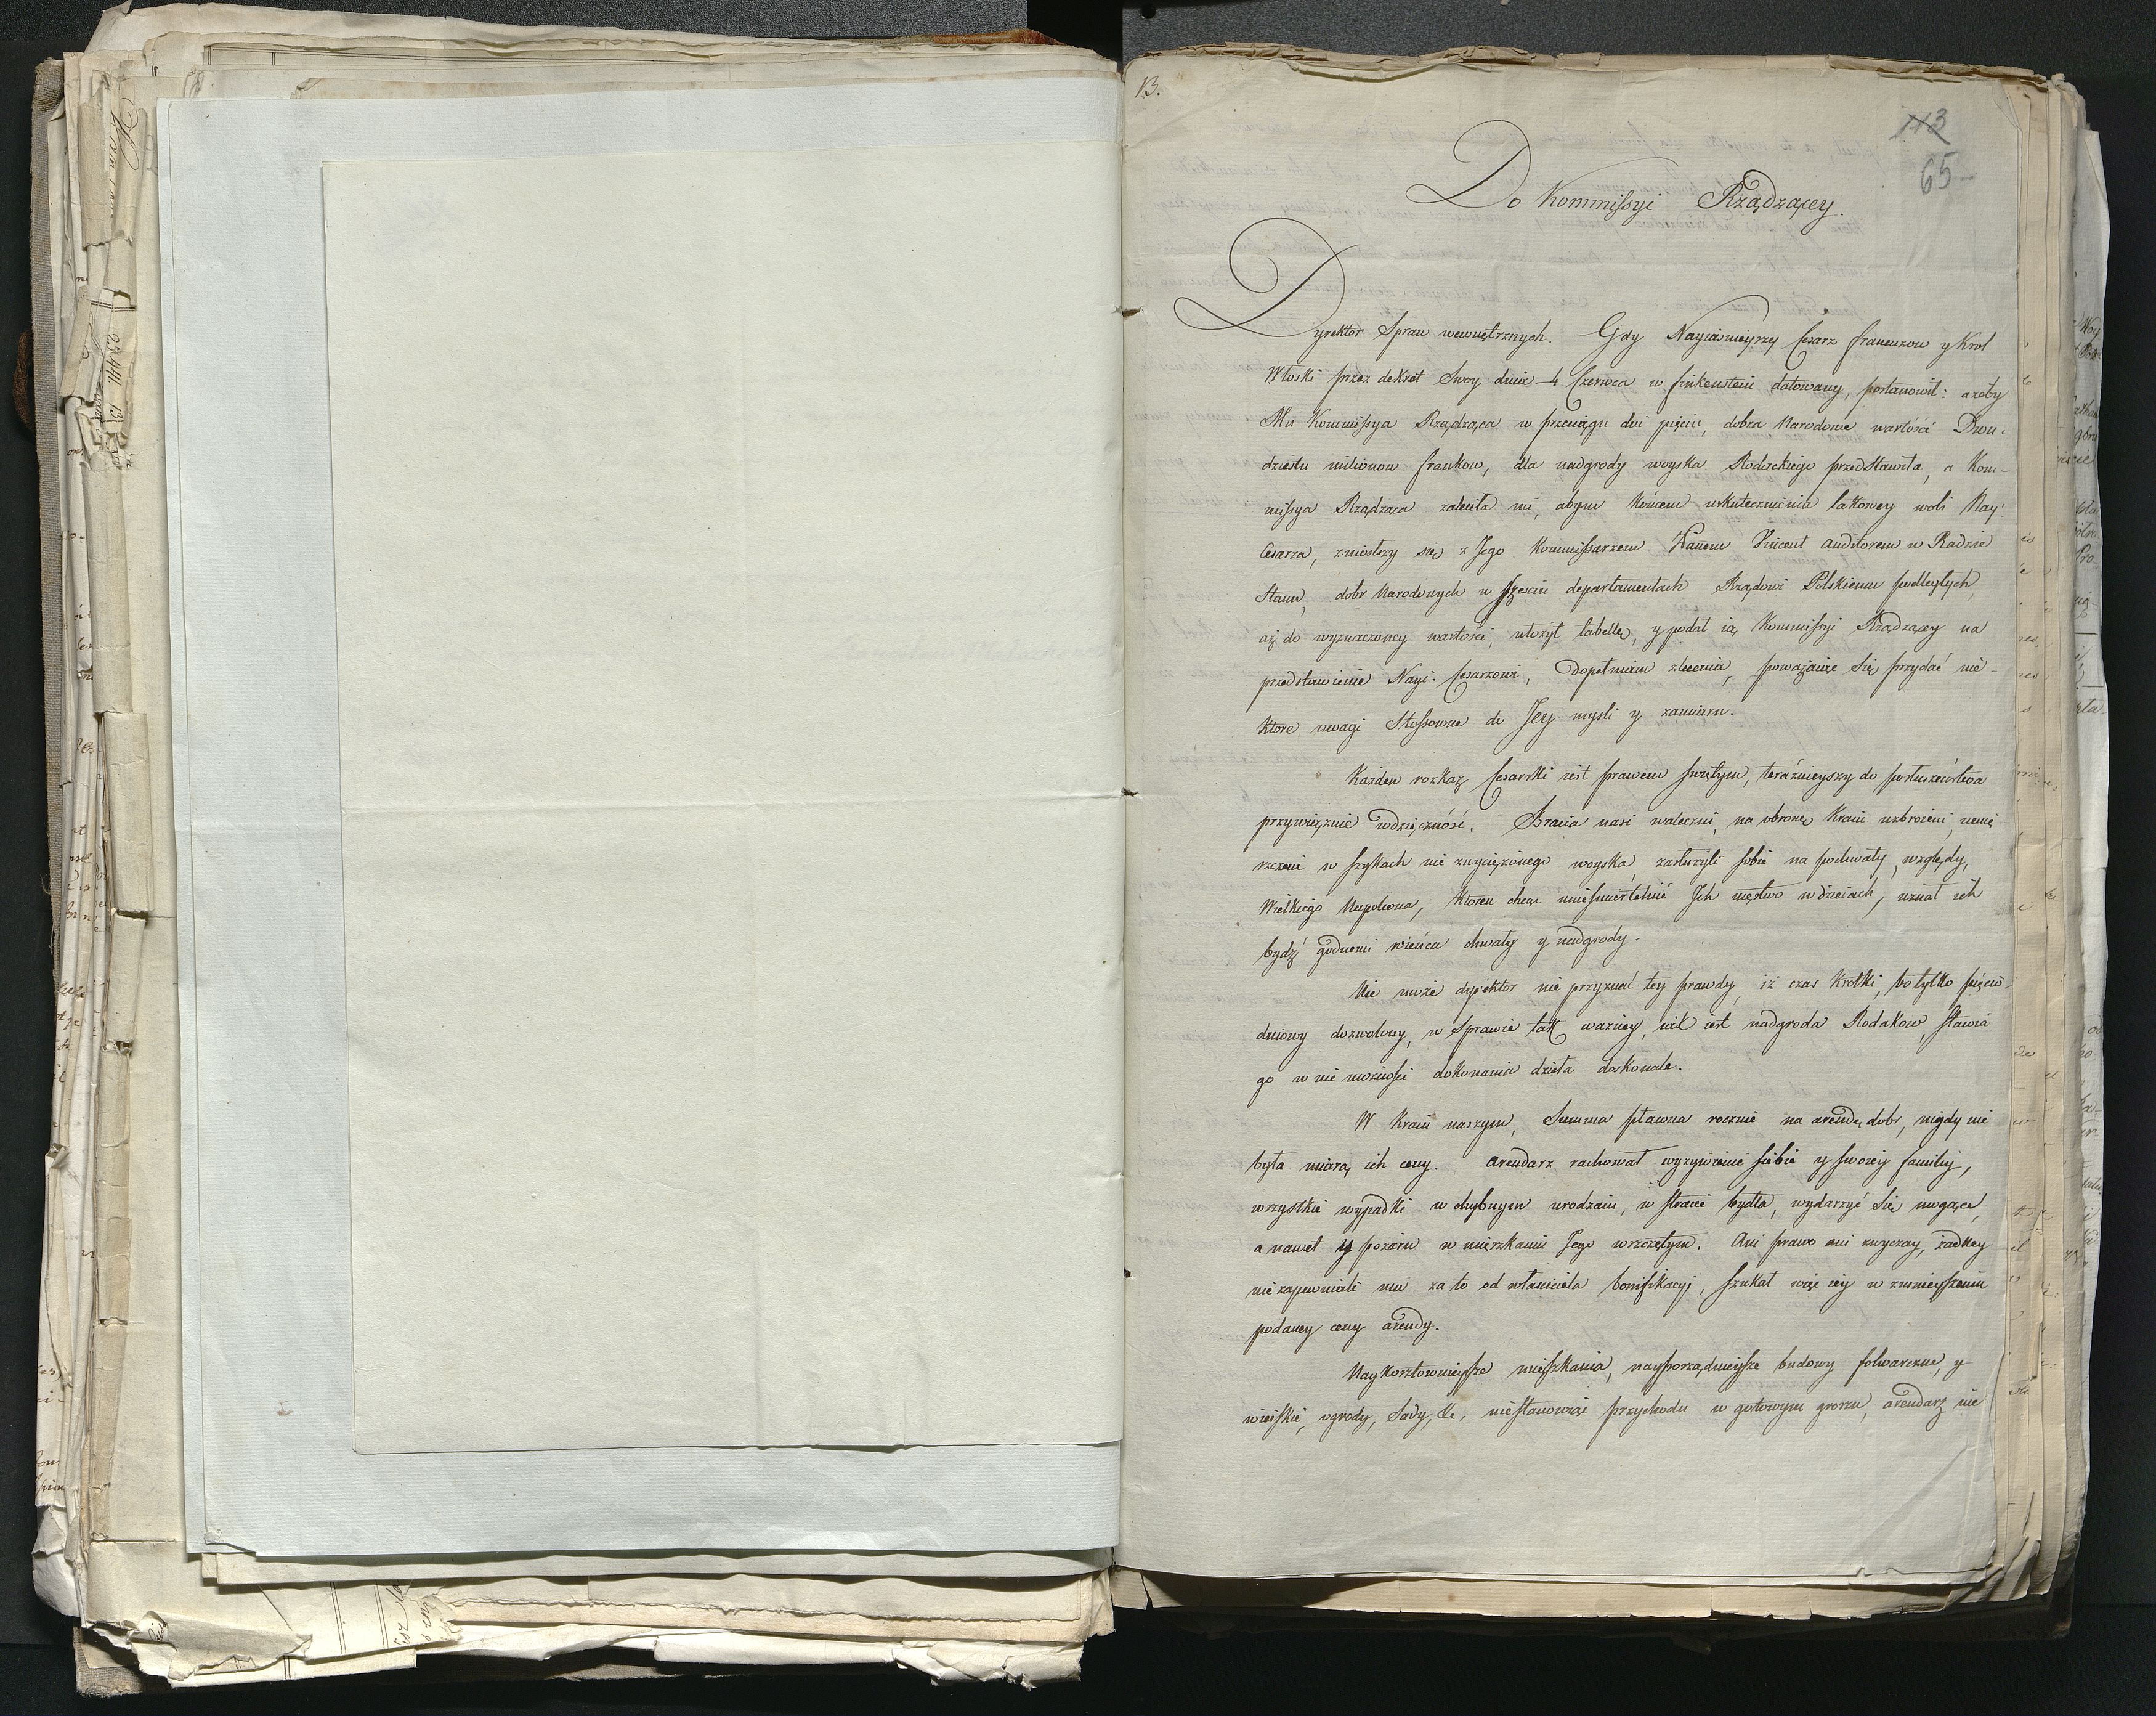 13.
113
65
Do Kommissyi Rządzącey.
Dyrektor Spraw wewnętrznych. Gdy Nayiaśnieyszy Cesarz francuzow y Krol
Włoski przez dekret Swoy dnia 4 Czerwca w finkenstein datowany, postanowił: ażeby
Mu Kommissya Rządząca w przeciągu dni pięciu, dobra Narodowe wartości Dwu-
dziestu milionow frankow, dla nadgrody woyska Rodackiego przedstawiła, a Kom-
missya Rządząca zaleciła mi, abym Końcem uskutecznienia takowey woli Nay:
Cesarza, zniosłszy się z Jego Kommissarzem Panem Vincent Auditorem w Radzie
Stanu, dobr Narodowych w sześciu departamentach Rządowi Polskiemu podległych,
aż do wyznaczoney wartości, ułożył tabellę, y podał ią Kommissyi Rządzącey na
przedstawienie Nayi: Cesarzowi, Dopełniam zlecenia, poważaiąc się przydać nie-
ktore uwagi Stossowne do Jey mysli y zamiaru.
Każden rozkaz Cesarski iest prawem świętym, teraźnieyszy do posłuszeństwa
przywiązuie wdzięczność. Bracia nasi waleczni, na obronę Kraiu uzbroieni, umie-
szczeni w szykach nie zwyciężonego woyska, zasłużyli sobie na pochwały, względy,
Wielkiego Napoleona, ktoren chcąc unieśmiertelnić Ich męstwo w dzieiach, uznał ich
bydź godnemi wieńca chwały y nadgrody.
Nie może dyrektor nie przyznać tey prawdy, iż czas krotki, bo tylko pięcio-
dniowy dozwolony, w sprawie tak ważney, iak iest nadgroda Rodakow, stawia
go w nie możności dokonania dzieła doskonale.
W Kraiu naszym, Summa płacona rocznie na arendę dobr, nigdy nie
była miarą ich ceny. Arendarz rachował wyżywienie siebie y swoiey familij,
wszystkie wypadki w chybnym urodzaiu, w stracie bydła, wydarzyć się mogące,
a nawet y pożaru w mieszkaniu Jego wszczętym. Ani prawo ani zwyczay, żadney
nie zapewniali mu za to od właściciela bonifikacyi, szukał więc iey w zmnieyszeniu
podaney ceny arendy.
Naykosztownieysze mieszkania, nayporządnieysze budowy folwarczne, y
wieyskie, ogrody, Sady, &c, niestanowiąc przychodu w gotowym groszu, arendarz nie